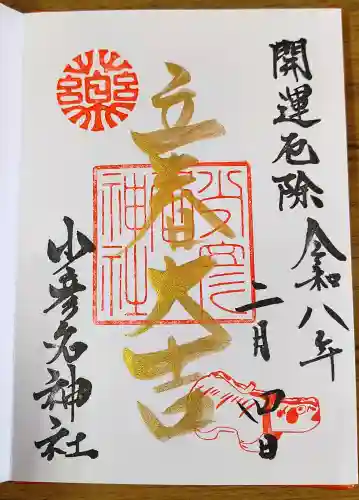 開運厄除
令和八年
二月四日
立春大吉
少彦名神社
薬
少彦名神社